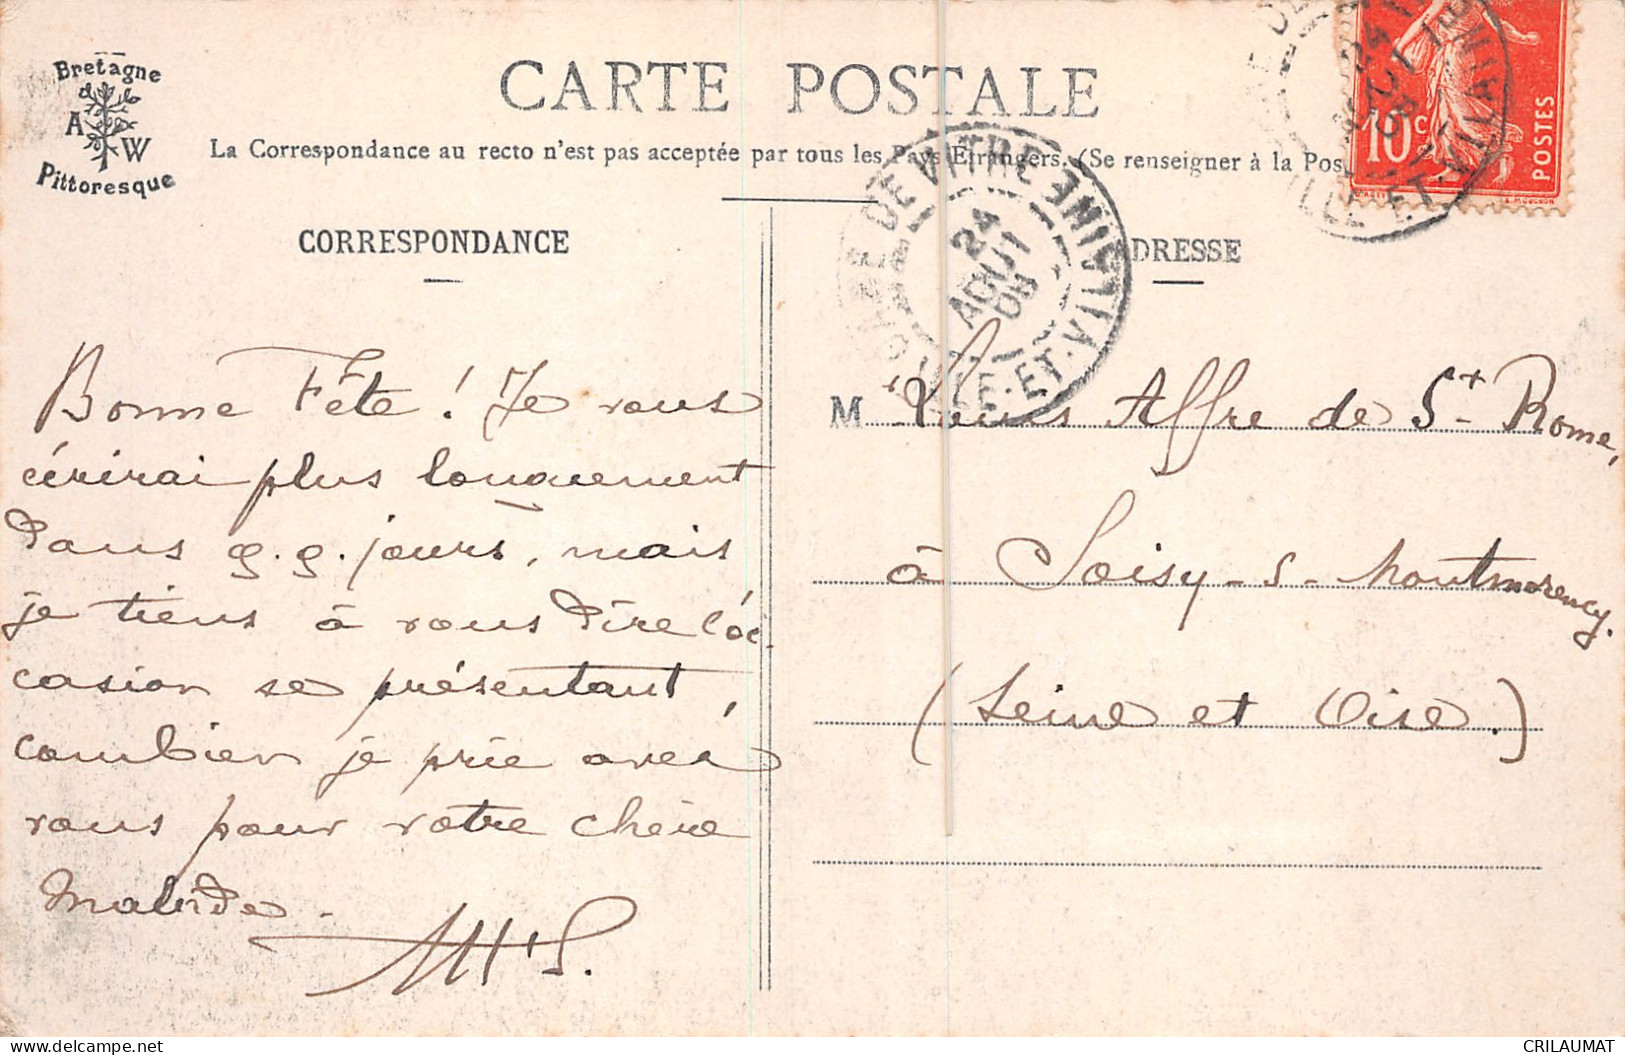 Bretagne
A W
Pittoresque
CARTE POSTALE
La Correspondance au recto n'est pas acceptée par tous les Pays Etrangers. (Se renseigner à la Pos
CORRESPONDANCE
Bonne Fête ! Je vous
écrirai plus longuement
dans q.q. jours, mais
je tiens à vous dire l'oc-
casion se présentant,
combien je prie avec
vous pour votre chère
Malade.
ADRESSE
M Louis Affre de St Rome,
à Soisy-s-Montmorency.
(Seine et Oise.)
GARE DE VITRE
24
AOUT
08
ILLE-ET-VILAINE
24
08
ILLE-ET-VILAINE
10c
POSTES
CRILAUMAT